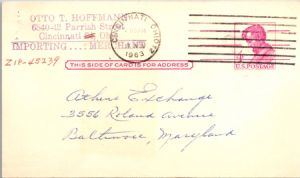 OTTO T. HOFFMANN
6840-12 Parrish Street
Cincinnati Oh
IMPORTING... MERCHANT
ZIP-45239
CINCINNATI, OHIO
1963
U.S. POSTAGE
THIS SIDE OF CARD IS FOR ADDRESS
Athine Exchange
3556 Roland Avenue
Baltimore, Maryland